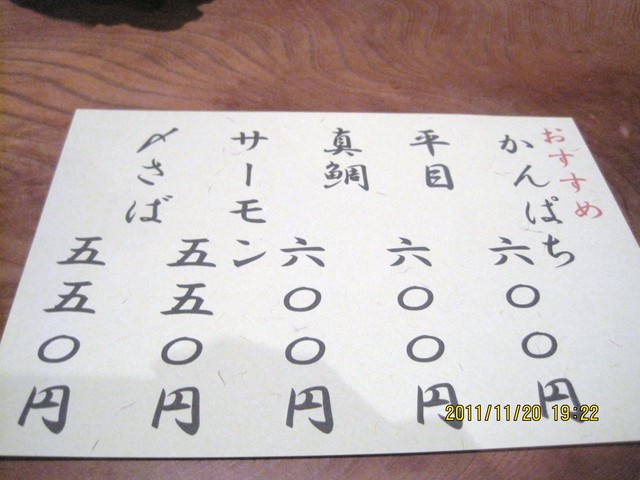 おすすめ
かんぱち 六〇〇円
平目 六〇〇円
真鯛 六〇〇円
サーモン 五五〇円
〆さば 五五〇円
2011/11/20 19:22